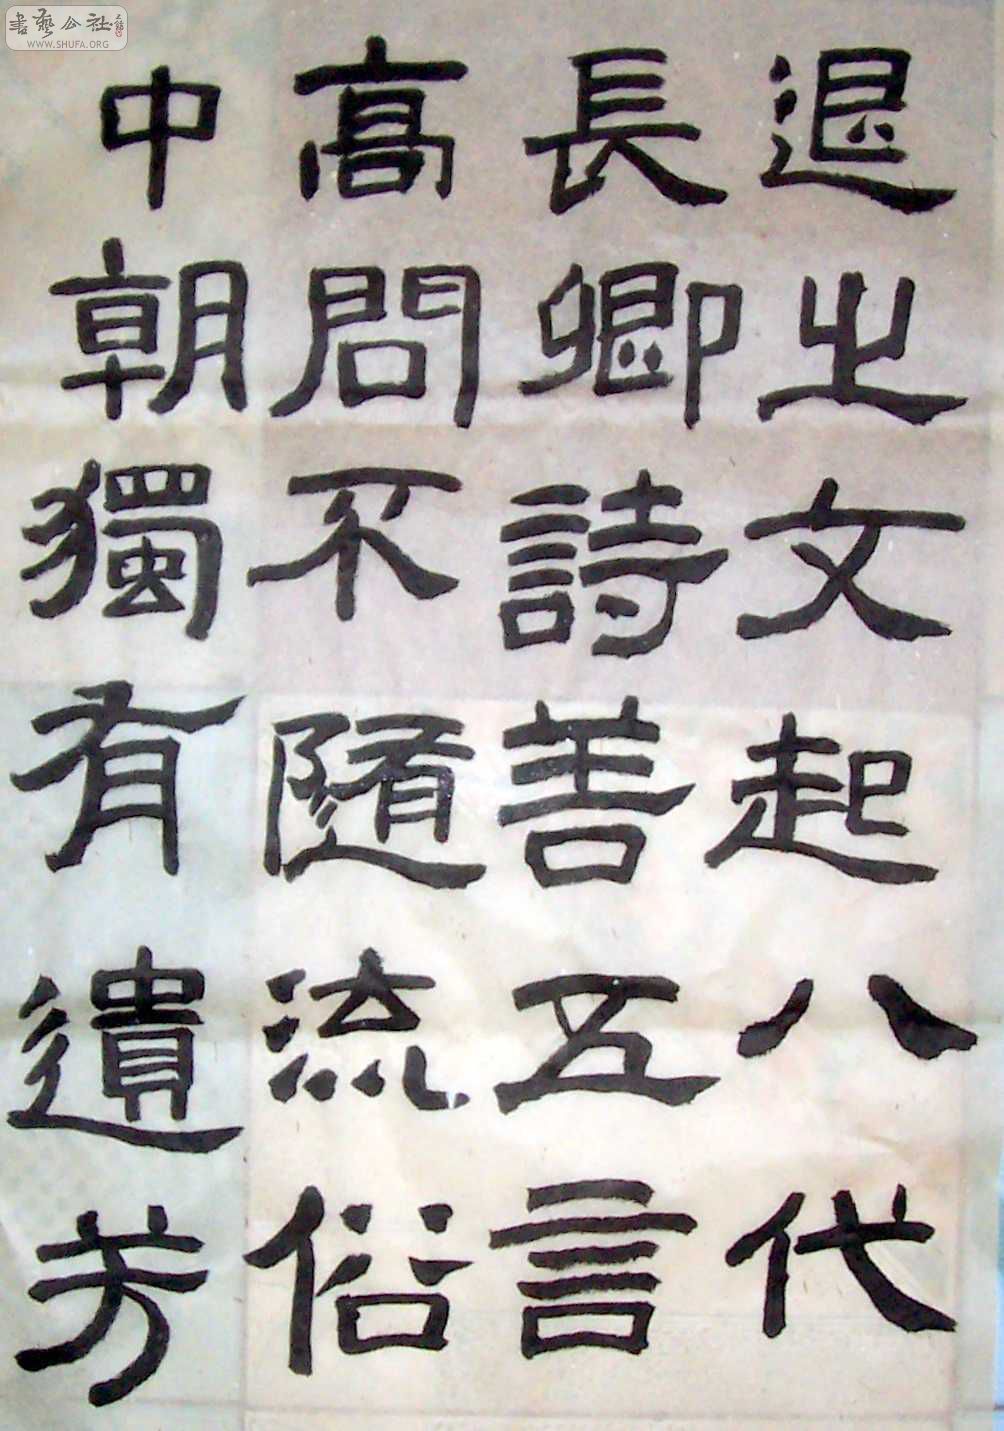 退之文起八代
長卿詩善五言
高問不随流俗
中朝獨有遺芳
書藝公社
WWW.SHUFA.ORG